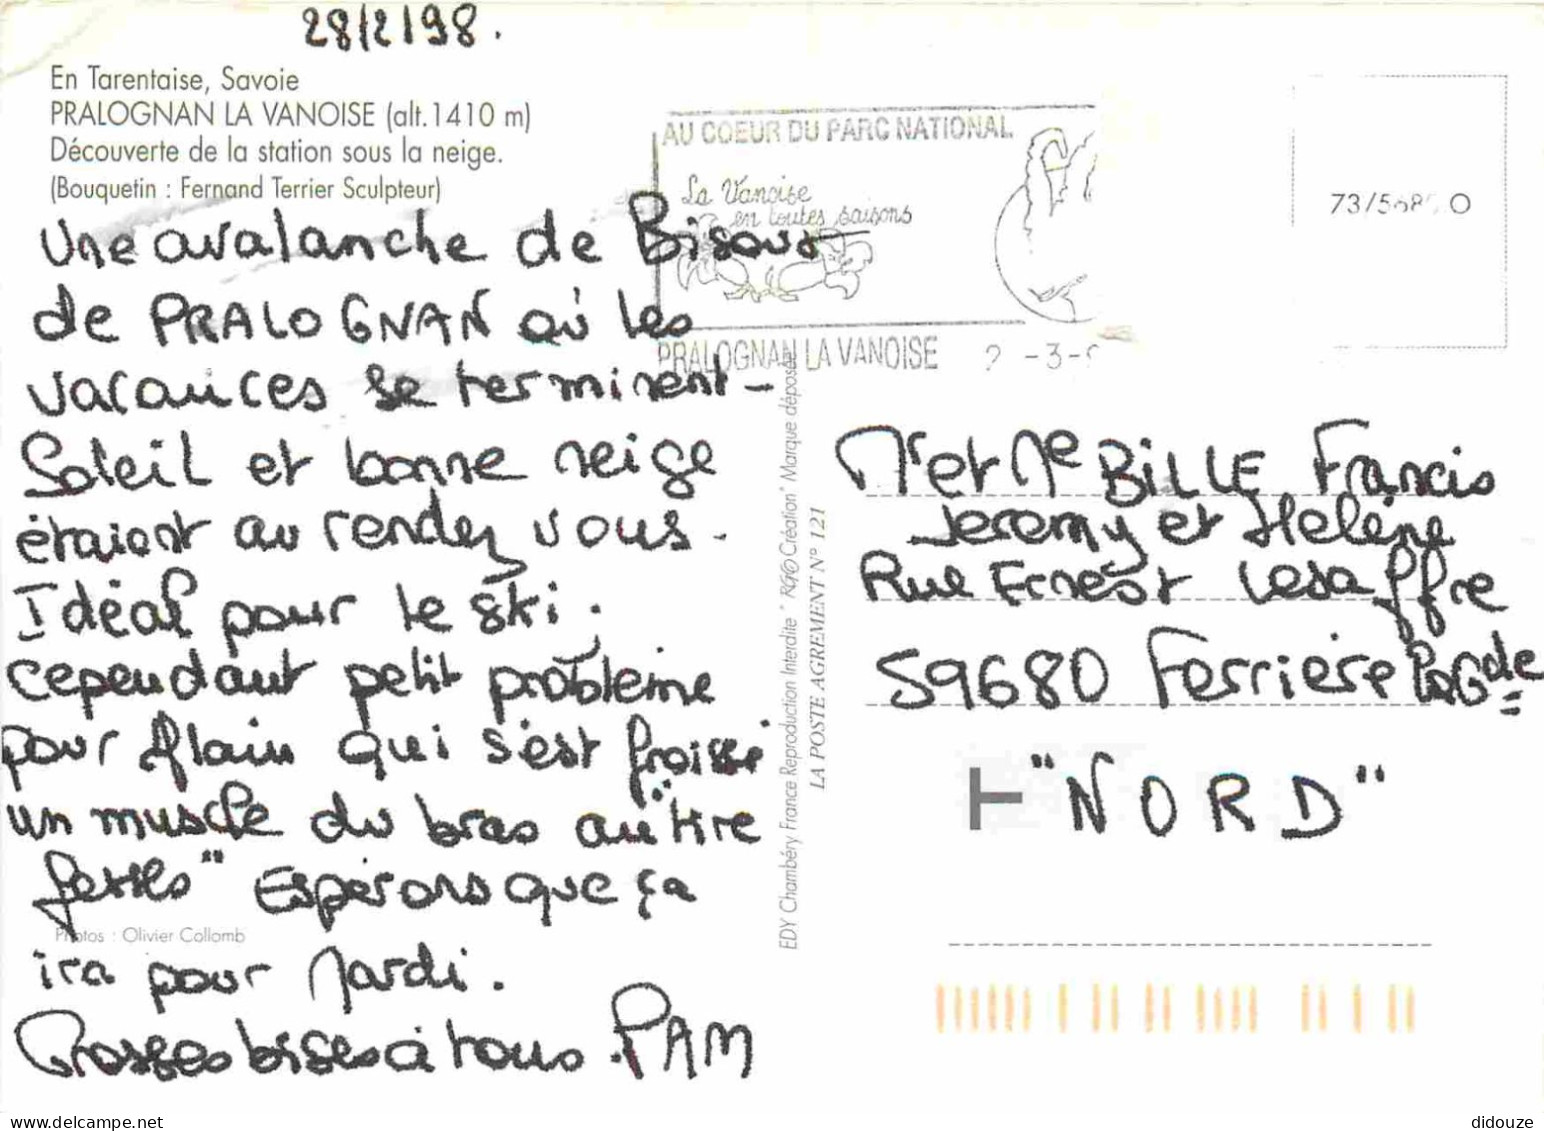 28/2/98.
En Tarentaise, Savoie
PRALOGNAN LA VANOISE (alt.1410 m)
Découverte de la station sous la neige.
(Bouquetin : Fernand Terrier Sculpteur)
Une avalanche de Bisous
de PRALOGNAN où les
vacances se terminent -
Soleil et bonne neige
étaient au rendez vous.
Idéal pour le ski.
cependant petit problème
pour Alain qui s'est froissé
un muscle du bras au "tire
fesses" Espérons que ça
ira pour Mardi.
Grosses bises à tous. PAM
Photos : Olivier Collomb
AU COEUR DU PARC NATIONAL
La Vanoise
en toutes saisons
PRALOGNAN LA VANOISE 2 -3-
EDY Chambéry France Reproduction Interdite "RGO Création" Marque déposée
LA POSTE AGREMENT N° 121
Mr et Me BILLE Francis
Jeremy et Hélène
Rue Ernest Lesaffre
59680 Ferrière La Gde
T "NORD"
didouze